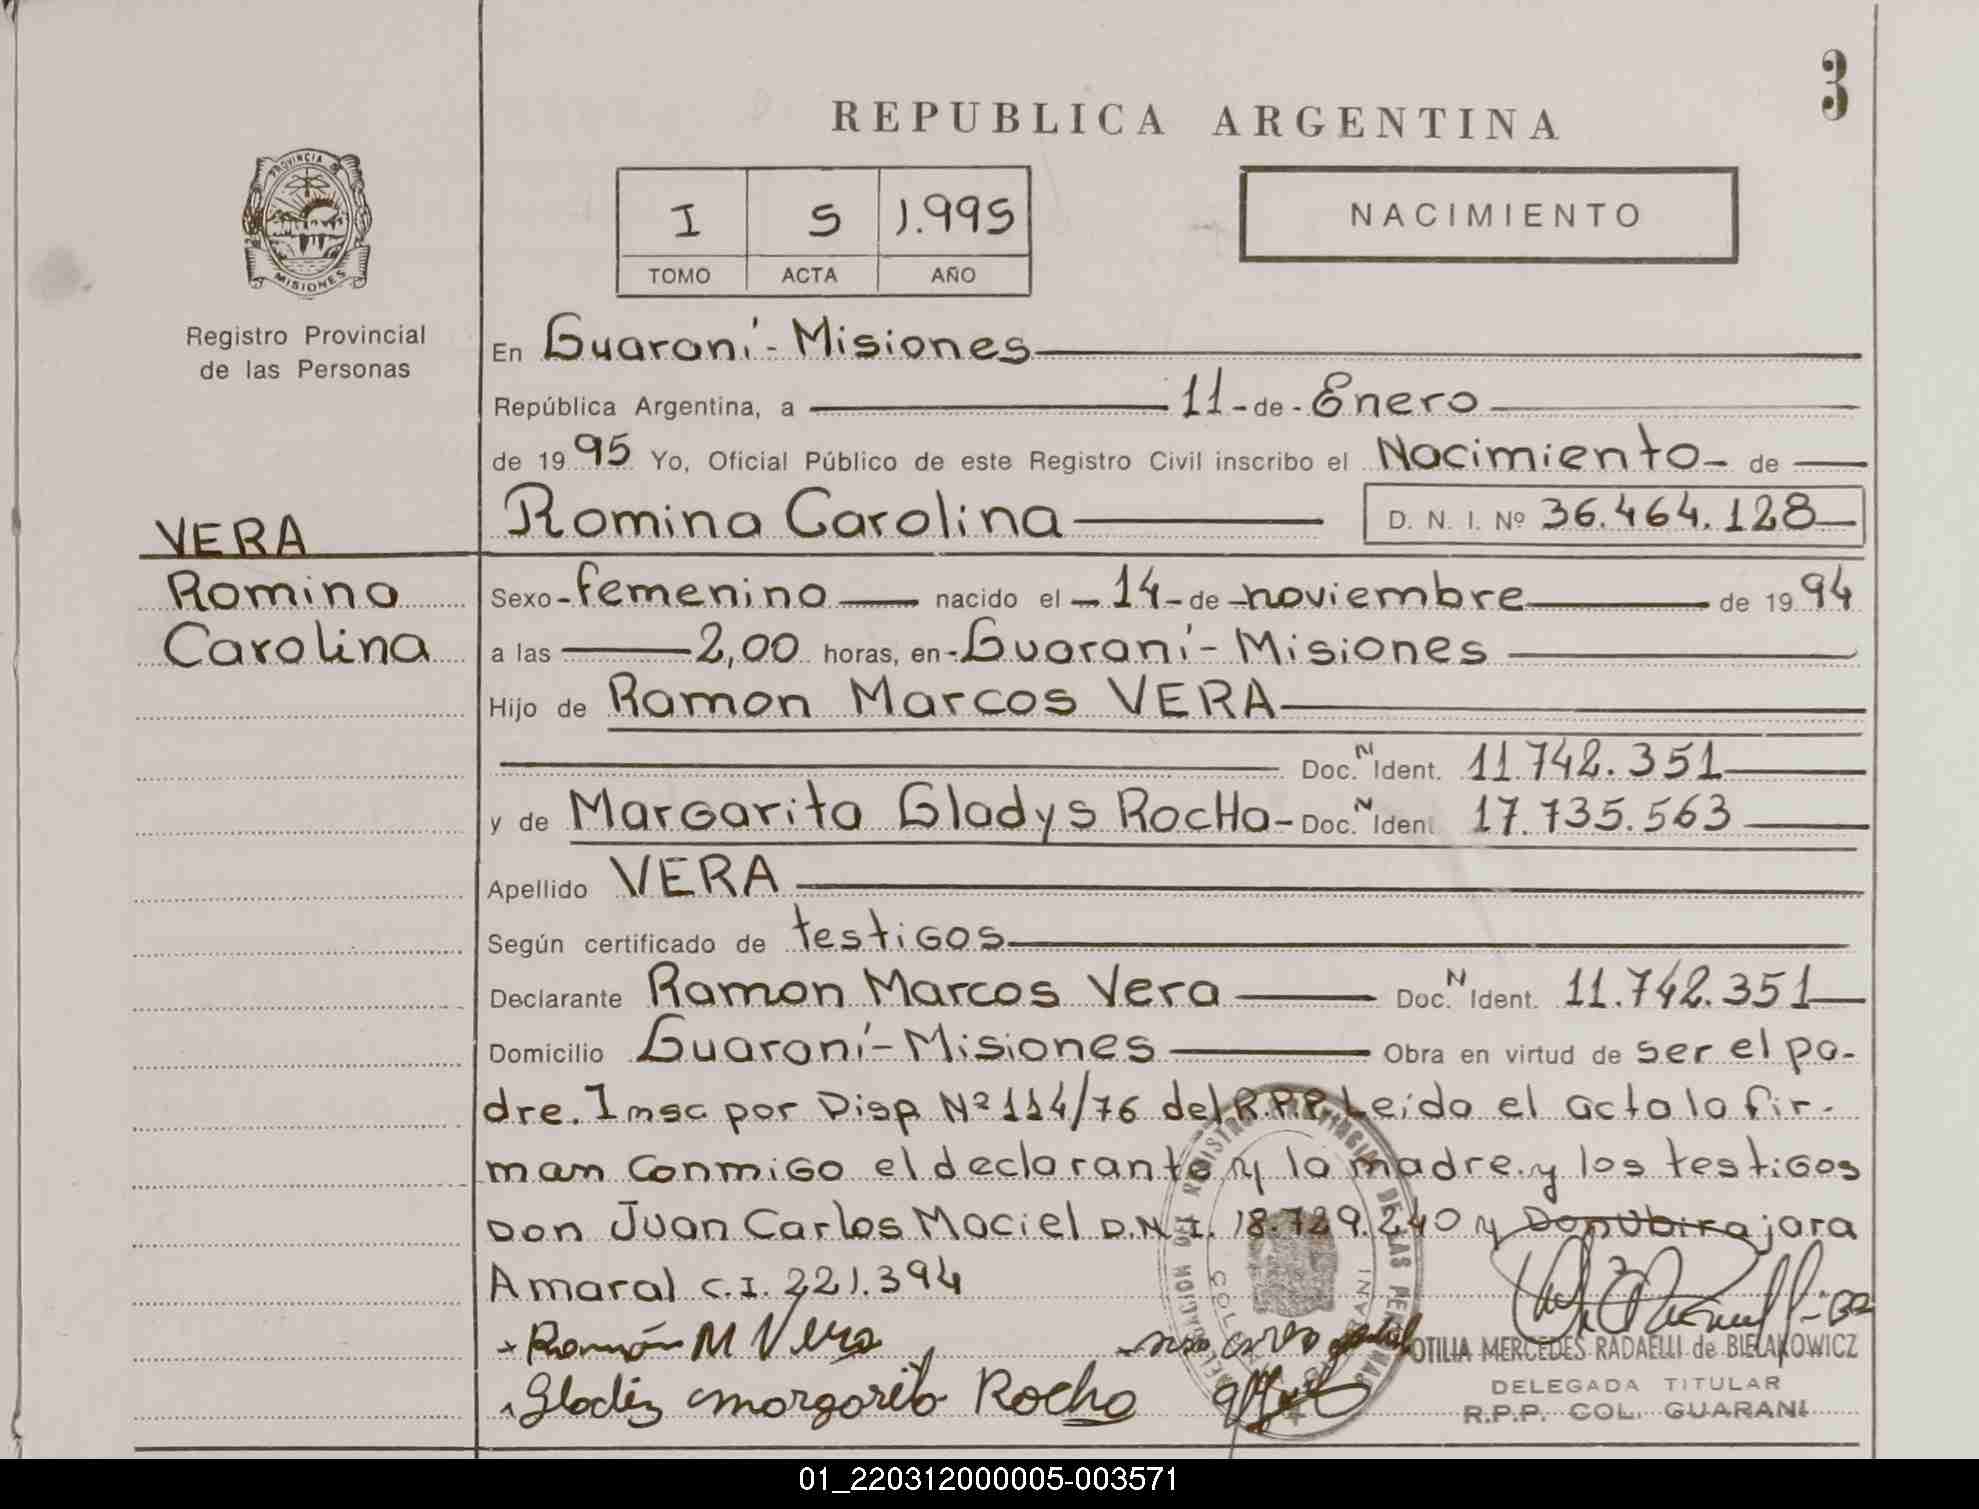 3
REPUBLICA ARGENTINA
PROVINCIA DE
MISIONES
Registro Provincial
de las Personas
I 5 1.995
TOMO ACTA AÑO
NACIMIENTO
En Guaraní - Misiones
República Argentina, a 11 - de - Enero
de 1995 Yo, Oficial Público de este Registro Civil inscribo el Nacimiento - de
Romina Carolina D. N. I. Nº 36.464.128
VERA
Romina
Carolina
Sexo - femenino nacido el - 14 - de - noviembre de 1994
a las 2,00 horas, en - Guaraní - Misiones
Hijo de Ramon Marcos VERA
Doc. N Ident. 11.742.351
y de Margarita Gladys RocHa - Doc. N Ident. 17.735.563
Apellido VERA
Según certificado de testigos
Declarante Ramon Marcos Vera Doc. N Ident. 11.742.351
Domicilio Guaraní - Misiones Obra en virtud de ser el pa-
dre. Insc por Disp Nº 114/76 del R.P.P. Leída el acta la fir-
man conmigo el declarante y la madre y los testigos
Don Juan Carlos Maciel D.N.I. 18.729.240 y Don Ubirajara
Amaral C.I. 221.394
Ramón M Vera
Gladis margarita Rocha
OTILIA MERCEDES RADAELLI de BIELAKOWICZ
DELEGADA TITULAR
R.P.P. COL. GUARANI
01_220312000005-003571